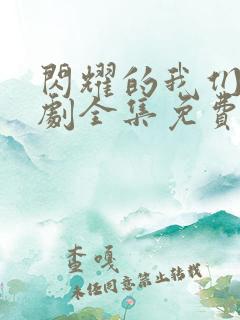 閃耀的我们
劇全集免費
查嘎
未任同意禁止转载